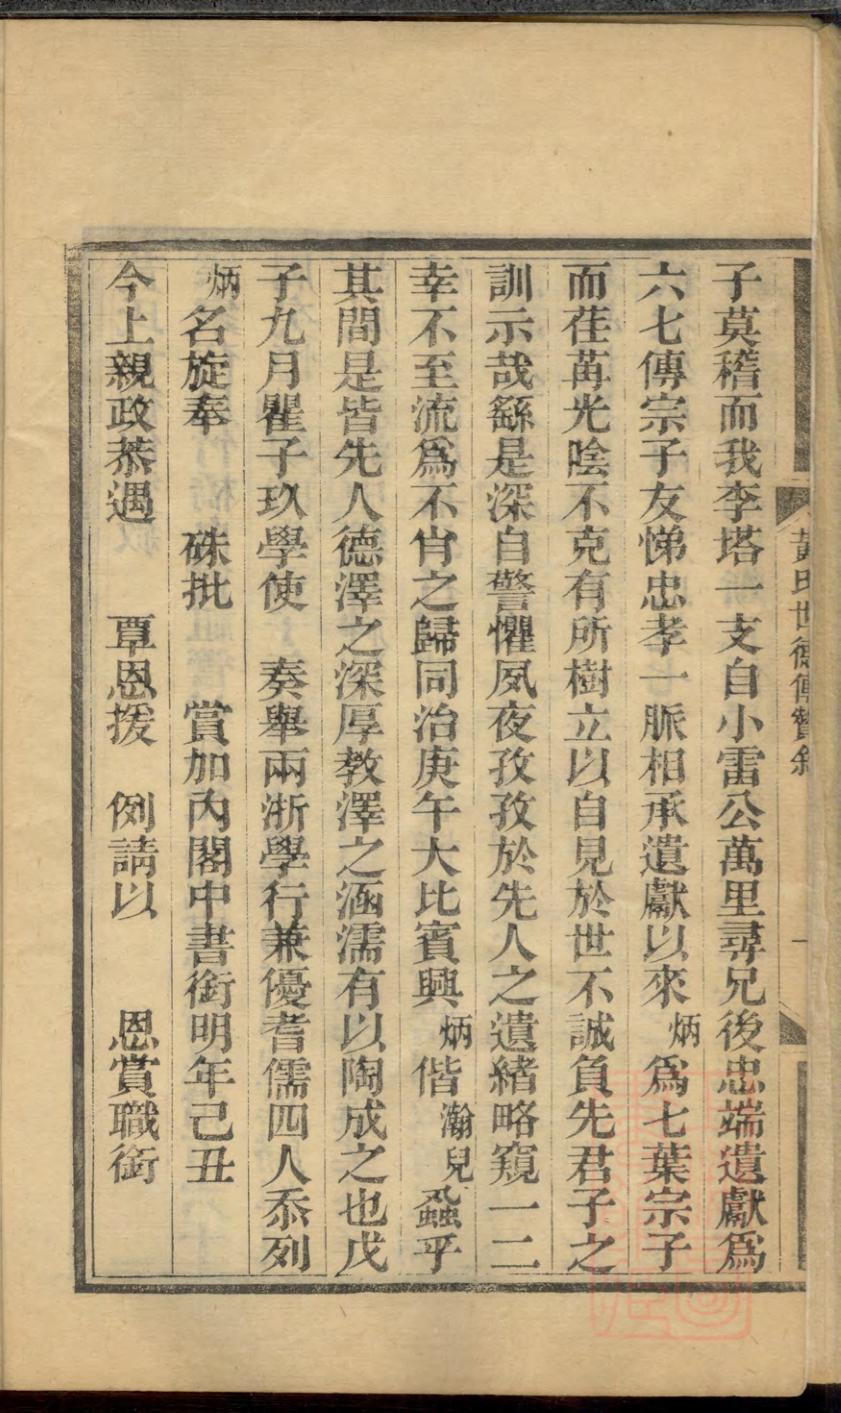 黃氏世德傳贊敘
一
子莫稽而我李塔一支自小雷公萬里尋兄後忠端遺獻爲
六七傳宗子友悌忠孝一脈相承遺獻以來炳爲七葉宗子
而荏苒光陰不克有所樹立以自見於世不誠負先君子之
訓示哉繇是深自警懼夙夜孜孜於先人之遺緒略窺一二
幸不至流爲不肖之歸同治庚午大比賓興炳偕瀚兒蝨乎
其間是皆先人德澤之深厚教澤之涵濡有以陶成之也戊
子九月瞿子玖學使 奏舉兩浙學行兼優耆儒四人忝列
炳名旋奉 硃批 賞加內閣中書銜明年己丑
今上親政恭遇 覃恩援 例請以 恩賞職銜